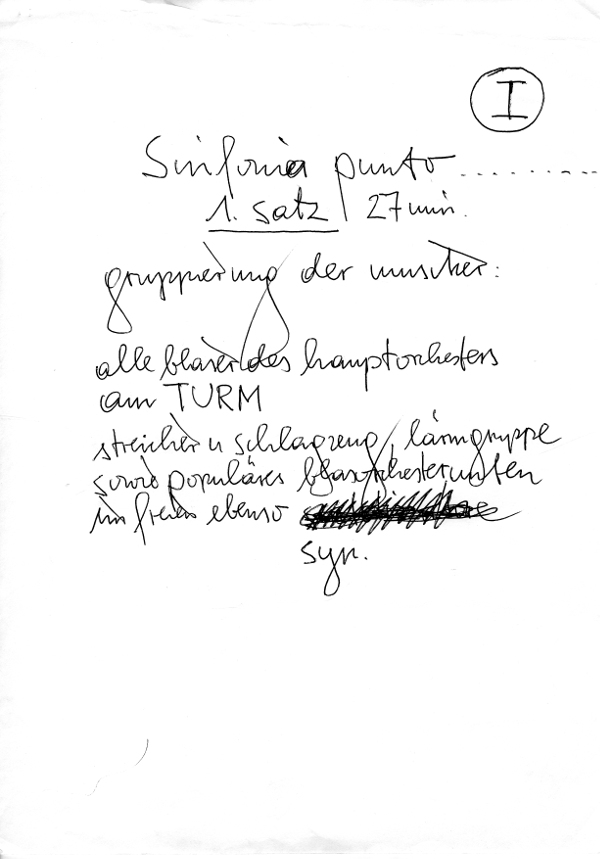 I
Sinfonia punto.........
1. Satz / 27 min.
gruppierung der musiker:
alle bläser des hauptorchesters
am TURM
streicher u schlagzeug, lärmgruppe
sowie populäres blasorchester unten
im freien ebenso
syn.